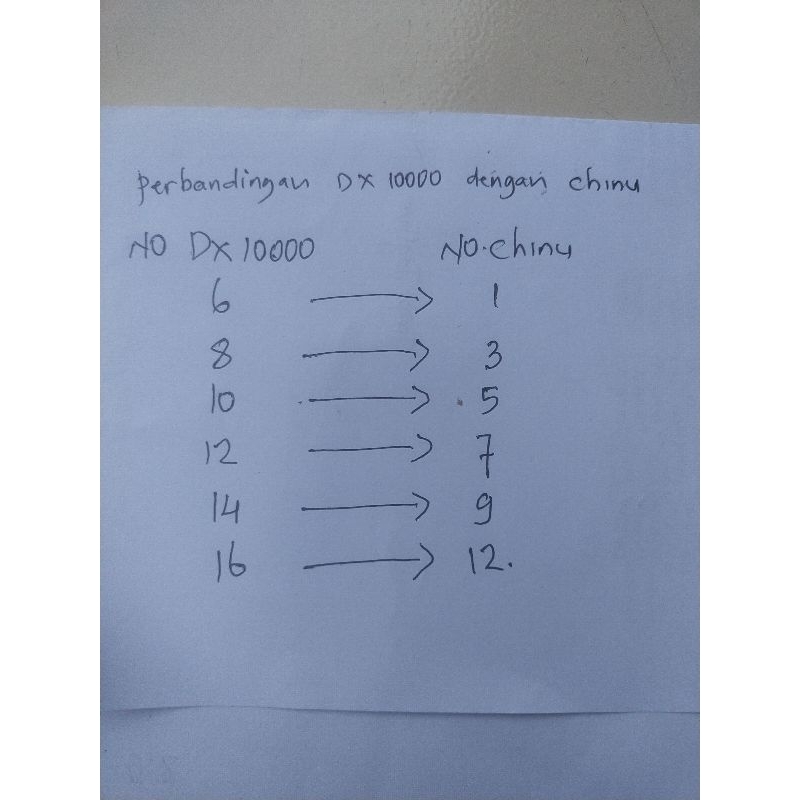 Perbandingan DX 10000 dengan chinu
NO DX 10000 NO. Chinu
6 → 1
8 → 3
10 → 5
12 → 7
14 → 9
16 → 12.